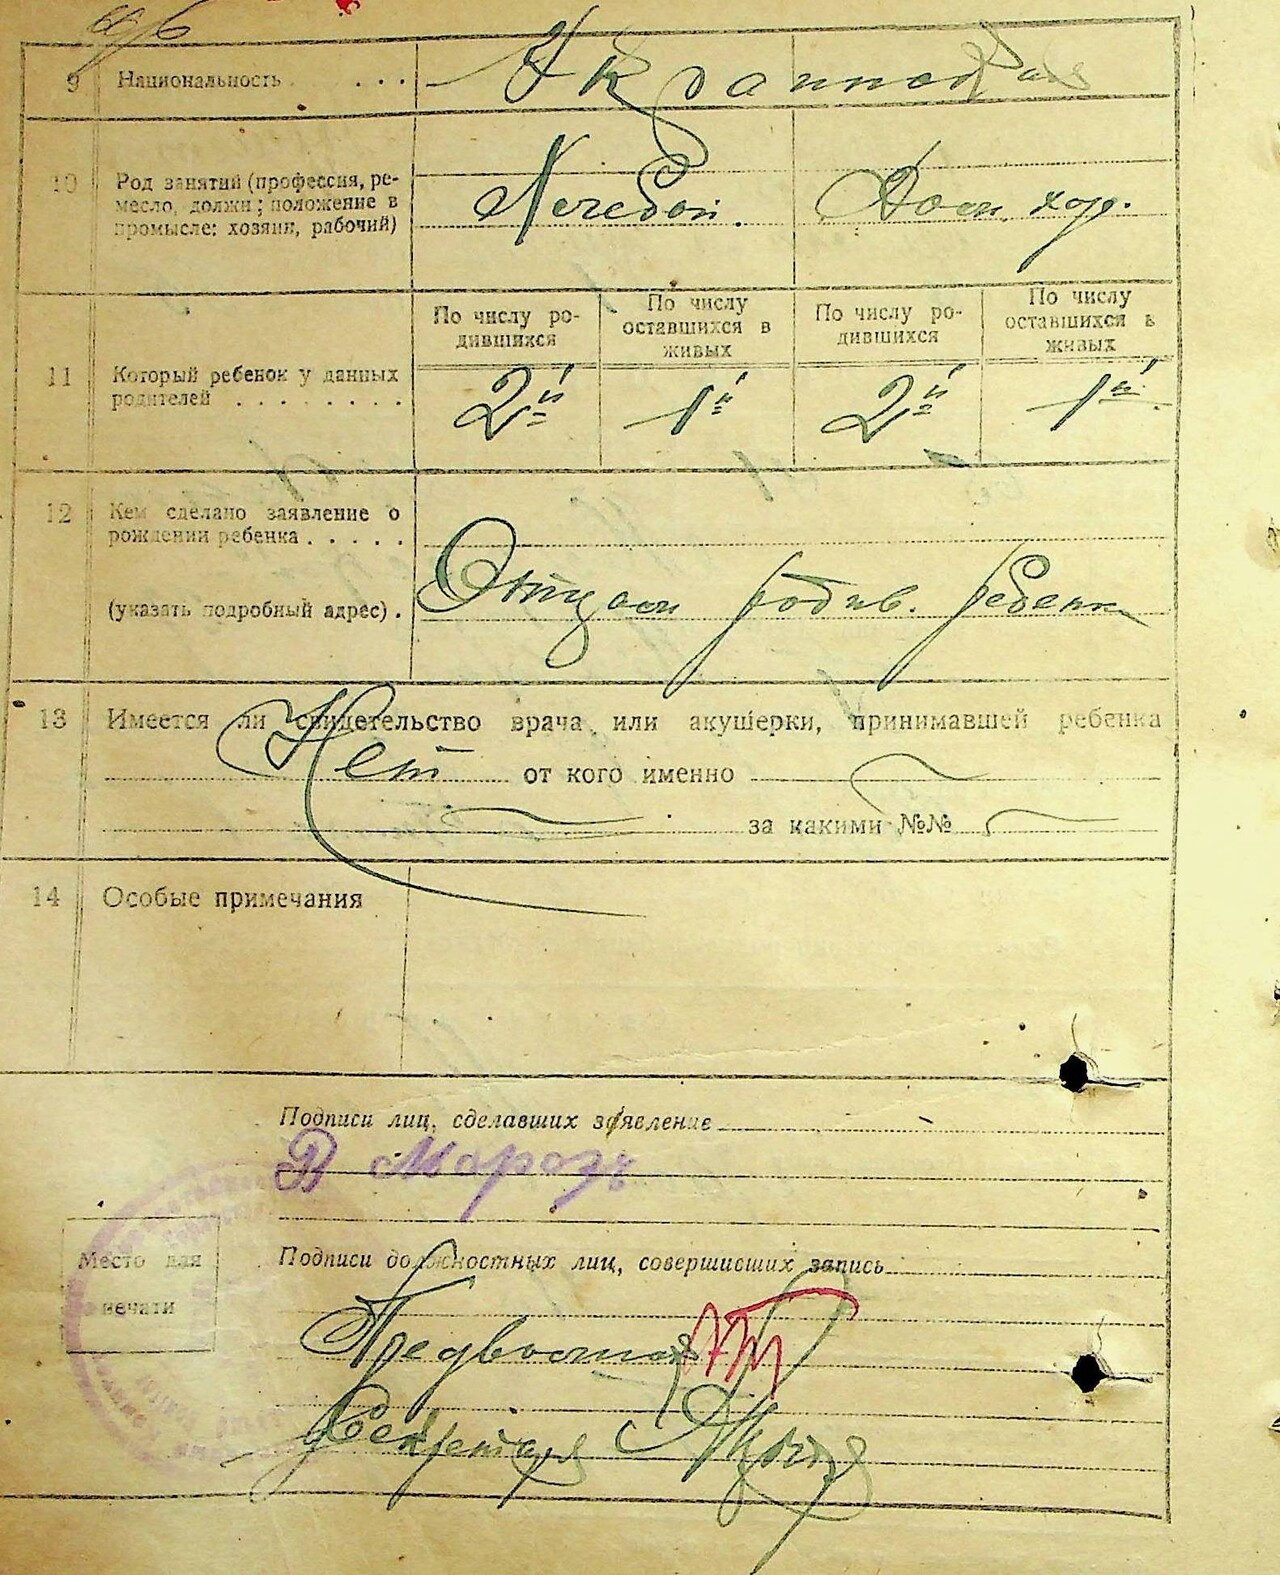 9 Национальность . . . .
10 Род занятий (профессия, ре-
месло, должн; положение в
промысле: хозяин, рабочий)
Хлебоп. Дом. хоз.
По числу ро-
дившихся
По числу
оставшихся в
живых
По числу ро-
дившихся
По числу
оставшихся в
живых
11 Который ребенок у данных
родителей . . . . . . . .
2й 1й 2й 1й
12 Кем сделано заявление о
рождении ребенка . . . . .
(указать подробный адрес) .
Отцом родив. ребенка
13 Имеется ли свидетельство врача или акушерки, принимавшей ребенка
Нет от кого именно
за какими №№
14 Особые примечания
Подписи лиц, сделавших заявление
В Марозъ
Место для
печати
Подписи должностных лиц, совершивших запись
Секретарь